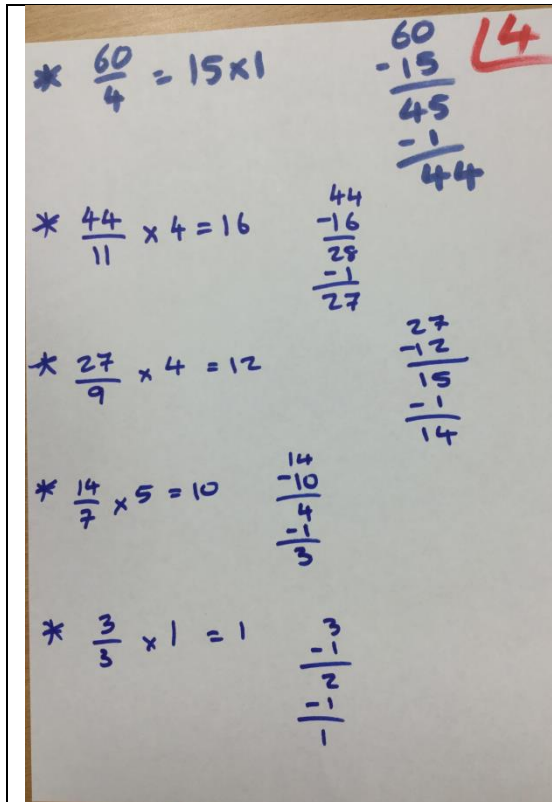 * 60/4 = 15×1
60
-15
45
-1
44
4
* 44/11 × 4 = 16
44
-16
28
-1
27
* 27/9 × 4 = 12
27
-12
15
-1
14
* 14/7 × 5 = 10
14
-10
4
-1
3
* 3/3 × 1 = 1
3
-1
2
-1
1